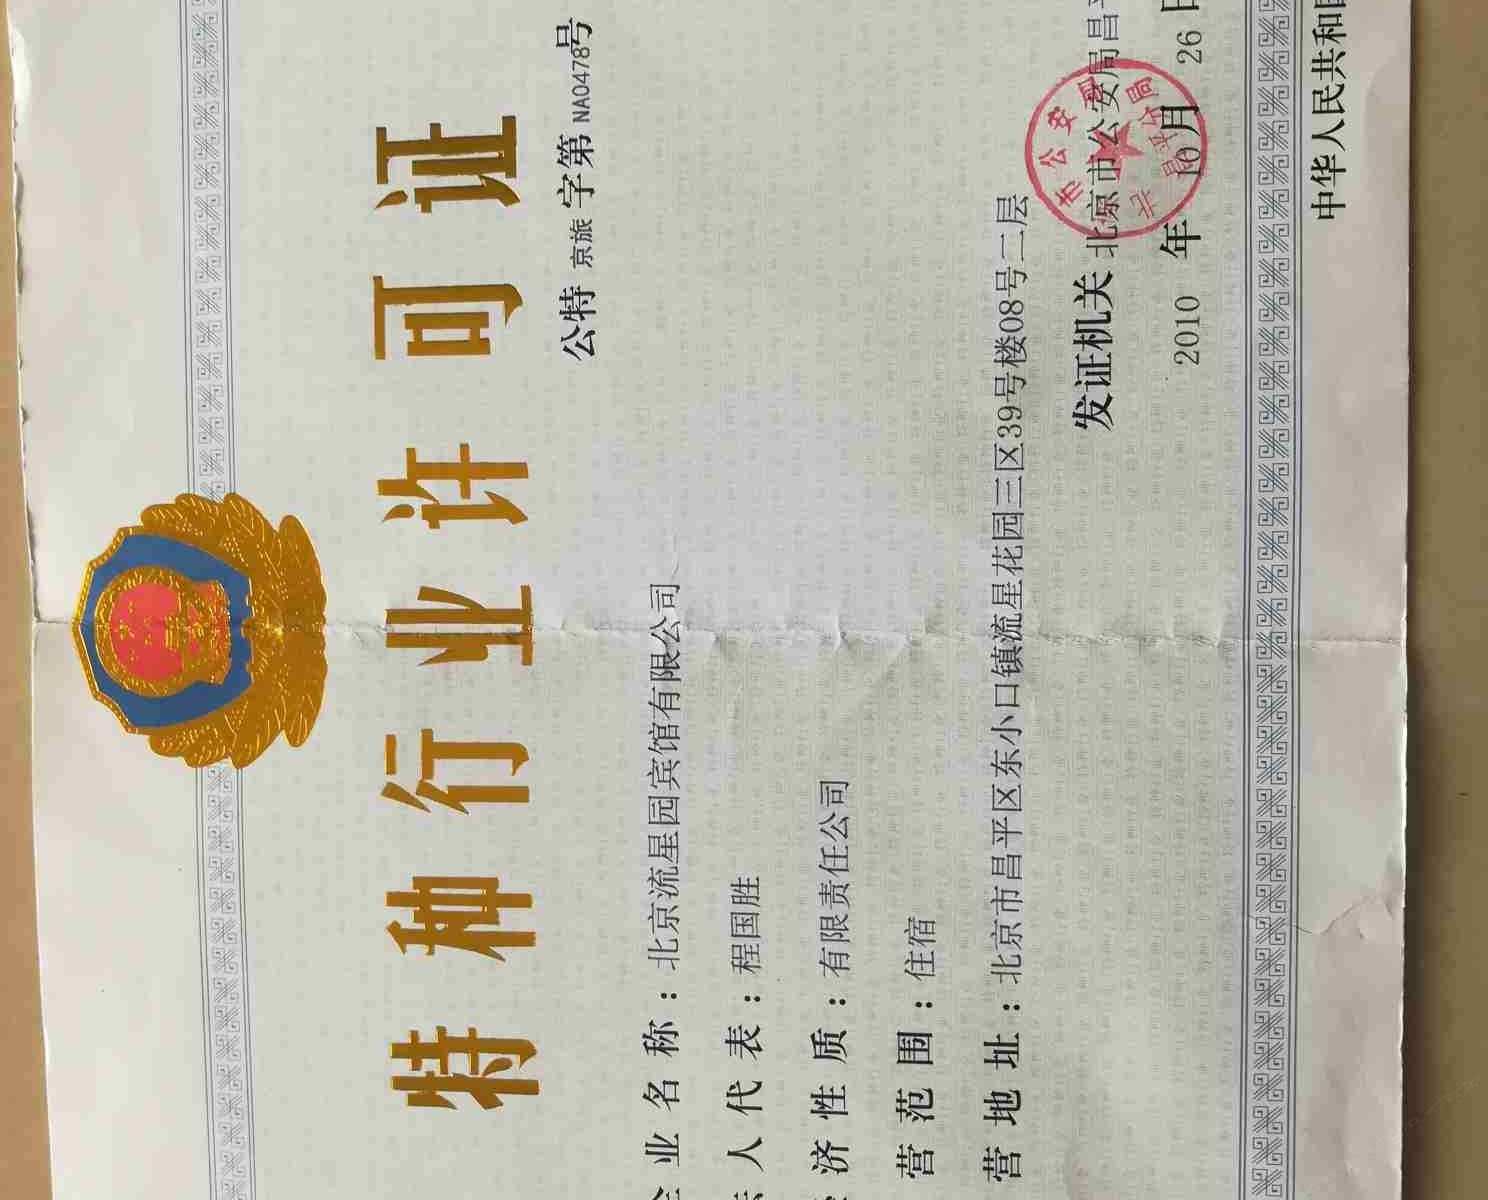 特种行业许可证
公特 京旅 字第 NA0478号
企业名称：北京流星园宾馆有限公司
法人代表：程国胜
经济性质：有限责任公司
营范围：住宿
营地址：北京市昌平区东小口镇流星花园三区39号楼08号二层
发证机关 北京市公安局昌平
2010 年 10月 26日
中华人民共和国